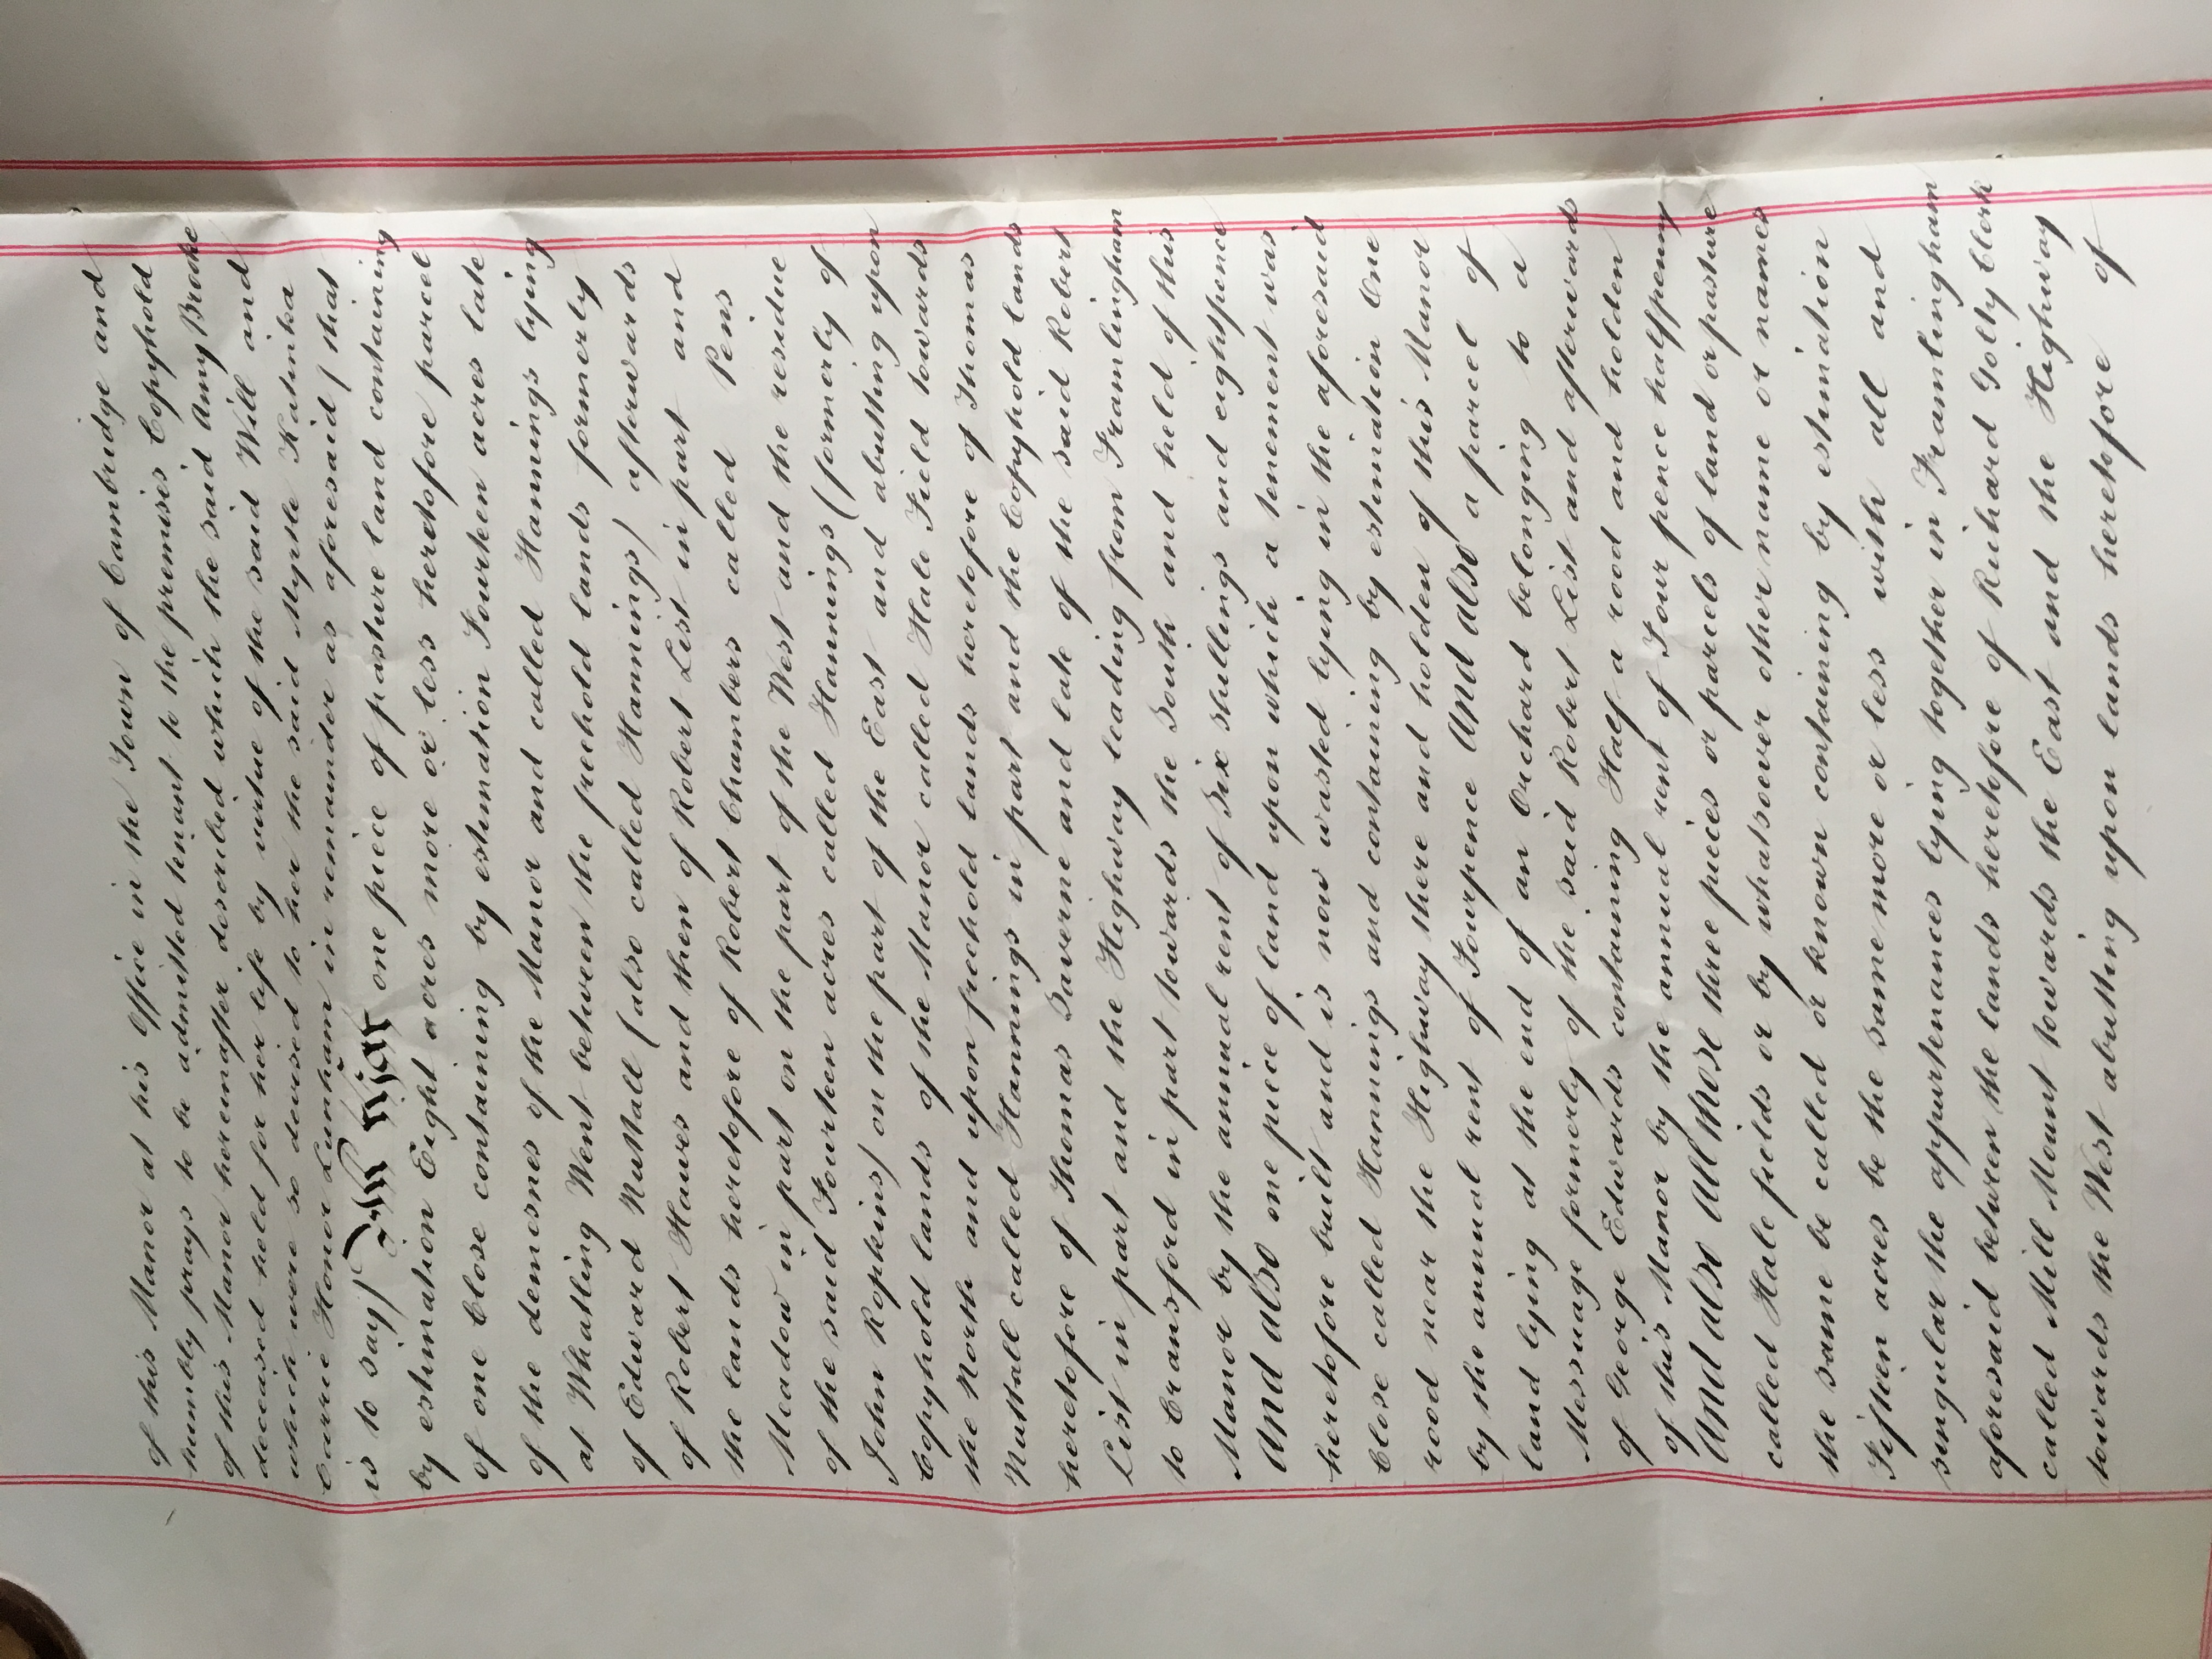 of this Manor at his Office in the Town of Cambridge and
humbly prays to be admitted tenant to the premises Copyhold
of this Manor hereinafter described which the said Amy Brooke
deceased held for her life by virtue of the said Will and
which were so devised to her the said Myrtle Katinka
Carrie Honor Lanham in remainder as aforesaid (that
is to say) All that one piece of pasture land containing
by estimation Eight acres more or less heretofore parcel
of one Close containing by estimation Fourteen acres late
of the demesnes of the Manor and called Hannings lying
at Whatling Went between the freehold lands formerly
of Edward Nuttall (also called Hannings) afterwards
of Robert Hawes and then of Robert List in part and
the lands heretofore of Robert Chambers called Pens
Meadow in part on the part of the West and the residue
of the said Fourteen acres called Hannings (formerly of
John Ropkins) on the part of the East and abutting upon
Copyhold lands of the Manor called Hale Field towards
the North and upon freehold lands heretofore of Thomas
Nuttall called Hannings in part and the Copyhold lands
heretofore of Thomas Saverne and late of the said Robert
List in part and the Highway leading from Framlingham
to Cransford in part towards the South and held of this
Manor by the annual rent of Six shillings and eightpence
And also one piece of land upon which a tenement was
heretofore built and is now wasted lying in the aforesaid
Close called Hannings and containing by estimation One
rood near the Highway there and holden of this Manor
by the annual rent of Fourpence And also a parcel of
land lying at the end of an Orchard belonging to a
Messuage formerly of the said Robert List and afterwards
of George Edwards containing Half a rood and holden
of this Manor by the annual rent of Four pence halfpenny
And also All those three pieces or parcels of land or pasture
called Hale fields or by whatsoever other name or names
the same be called or known containing by estimation
Fifteen acres be the same more or less with all and
singular the appurtenances lying together in Framlingham
aforesaid between the lands heretofore of Richard Golty Clerk
called Mill Mount towards the East and the Highway
towards the West abutting upon lands heretofore of